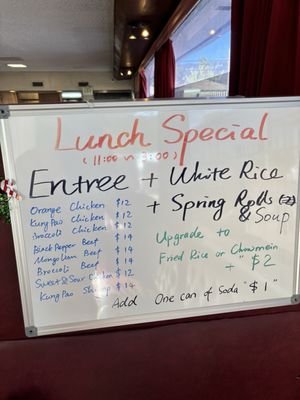 Lunch Special
(11:00 ~ 3:00)
Entree + White Rice
+ Spring Rolls (2)
& Soup
Orange Chicken $12
Kung Pao Chicken $12
Broccoli Chicken $12
Black Pepper Beef $14
Mongolian Beef $14
Broccoli Beef $14
Sweet & Sour Chicken $12
Kung Pao Shrimp $14
Upgrade to
Fried Rice or Chowmein
+ "$2
Add One can of Soda "$1"